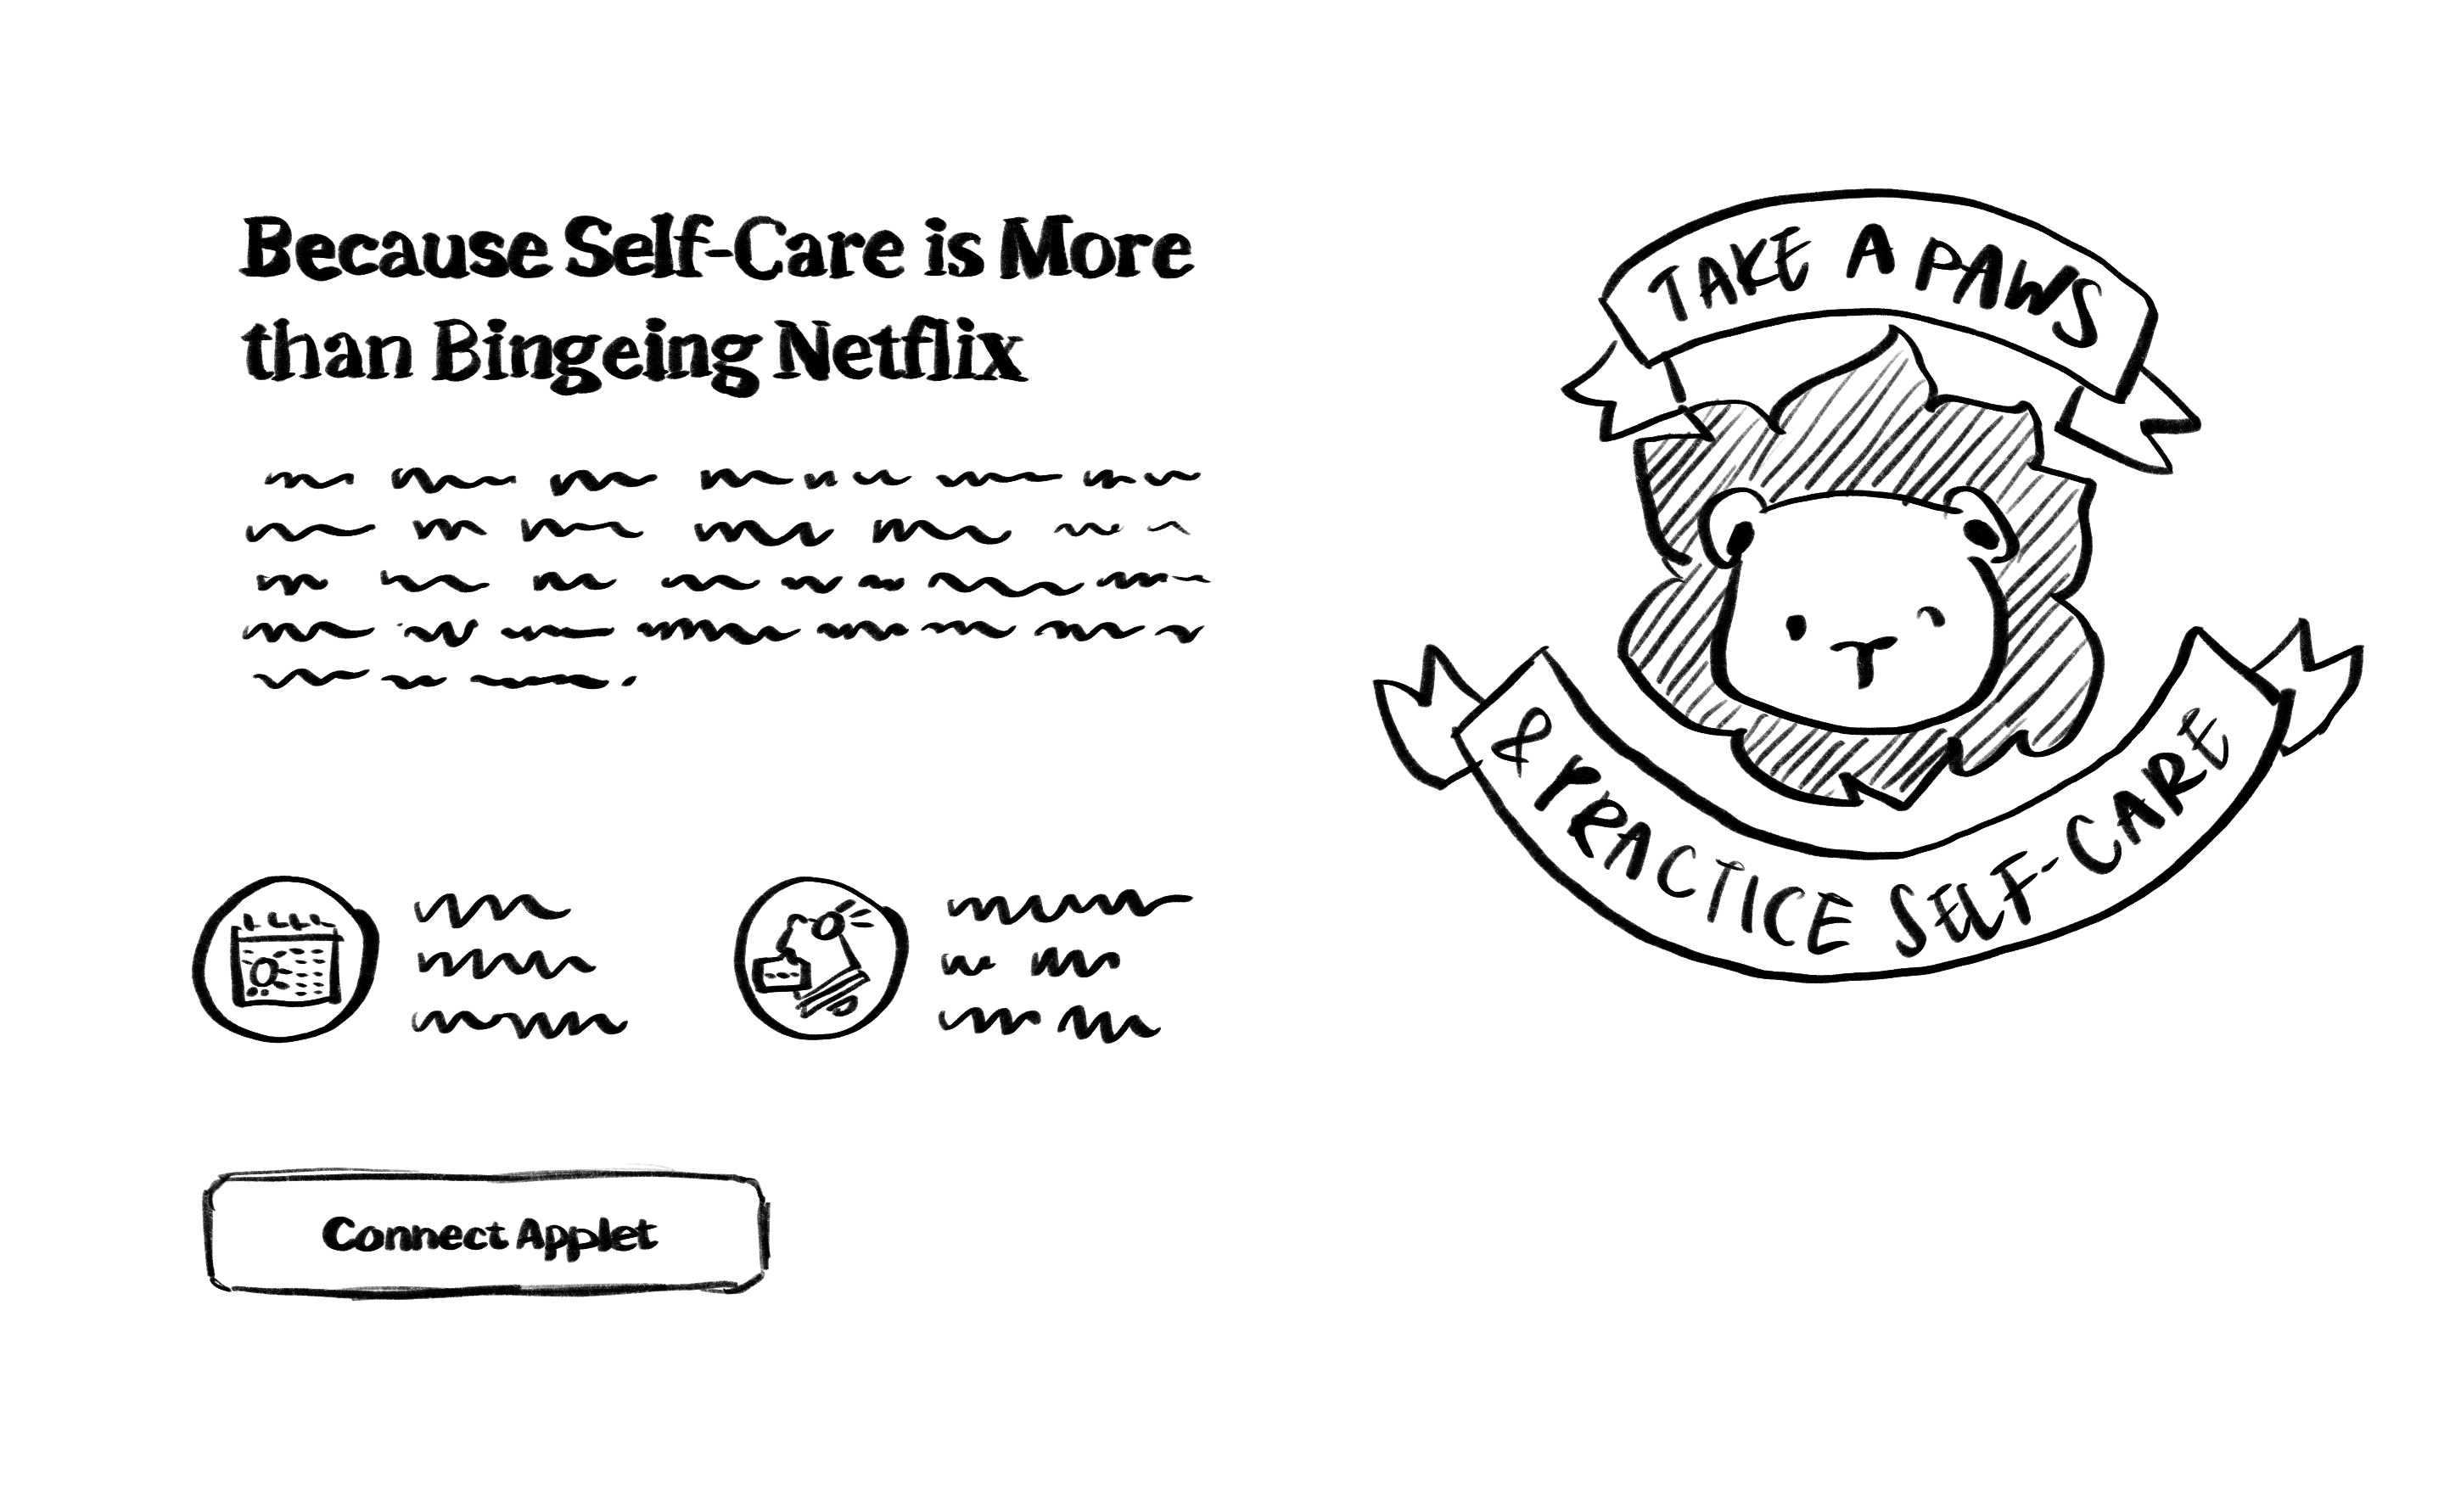 Because Self-Care is More
than Bingeing Netflix
Connect Applet
TAKE A PAWS
& PRACTICE SELF-CARE